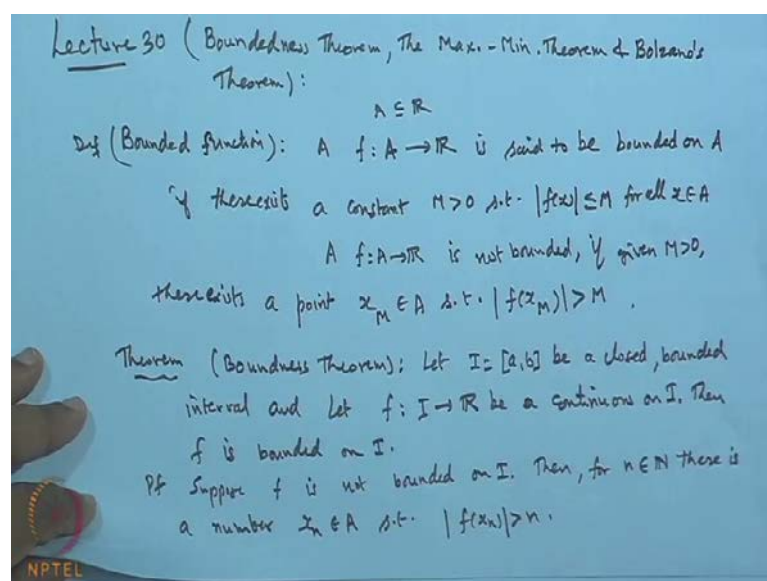 Lecture 30 ( Boundedness Theorem, The Max. - Min. Theorem & Bolzano's
Theorem ) :
A ⊆ ℝ
Def ( Bounded function ) : A f : A → ℝ is said to be bounded on A
if there exists a constant M > 0 s.t. |f(x)| ≤ M for all x ∈ A
A f : A → ℝ is not bounded, if given M > 0,
there exists a point x_M ∈ A s.t. | f(x_M)| > M .
Theorem ( Boundness Theorem ) ; Let I = [a, b] be a closed, bounded
interval and Let f : I → ℝ be a continuous on I. Then
f is bounded on I.
Pf Suppose f is not bounded on I. Then, for n ∈ ℕ there is
a number x_n ∈ A s.t. | f(x_n)| > n .
NPTEL